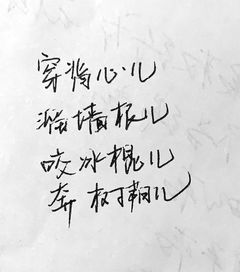 穿背心儿
墙根儿
咬冰棍儿
奔树儿